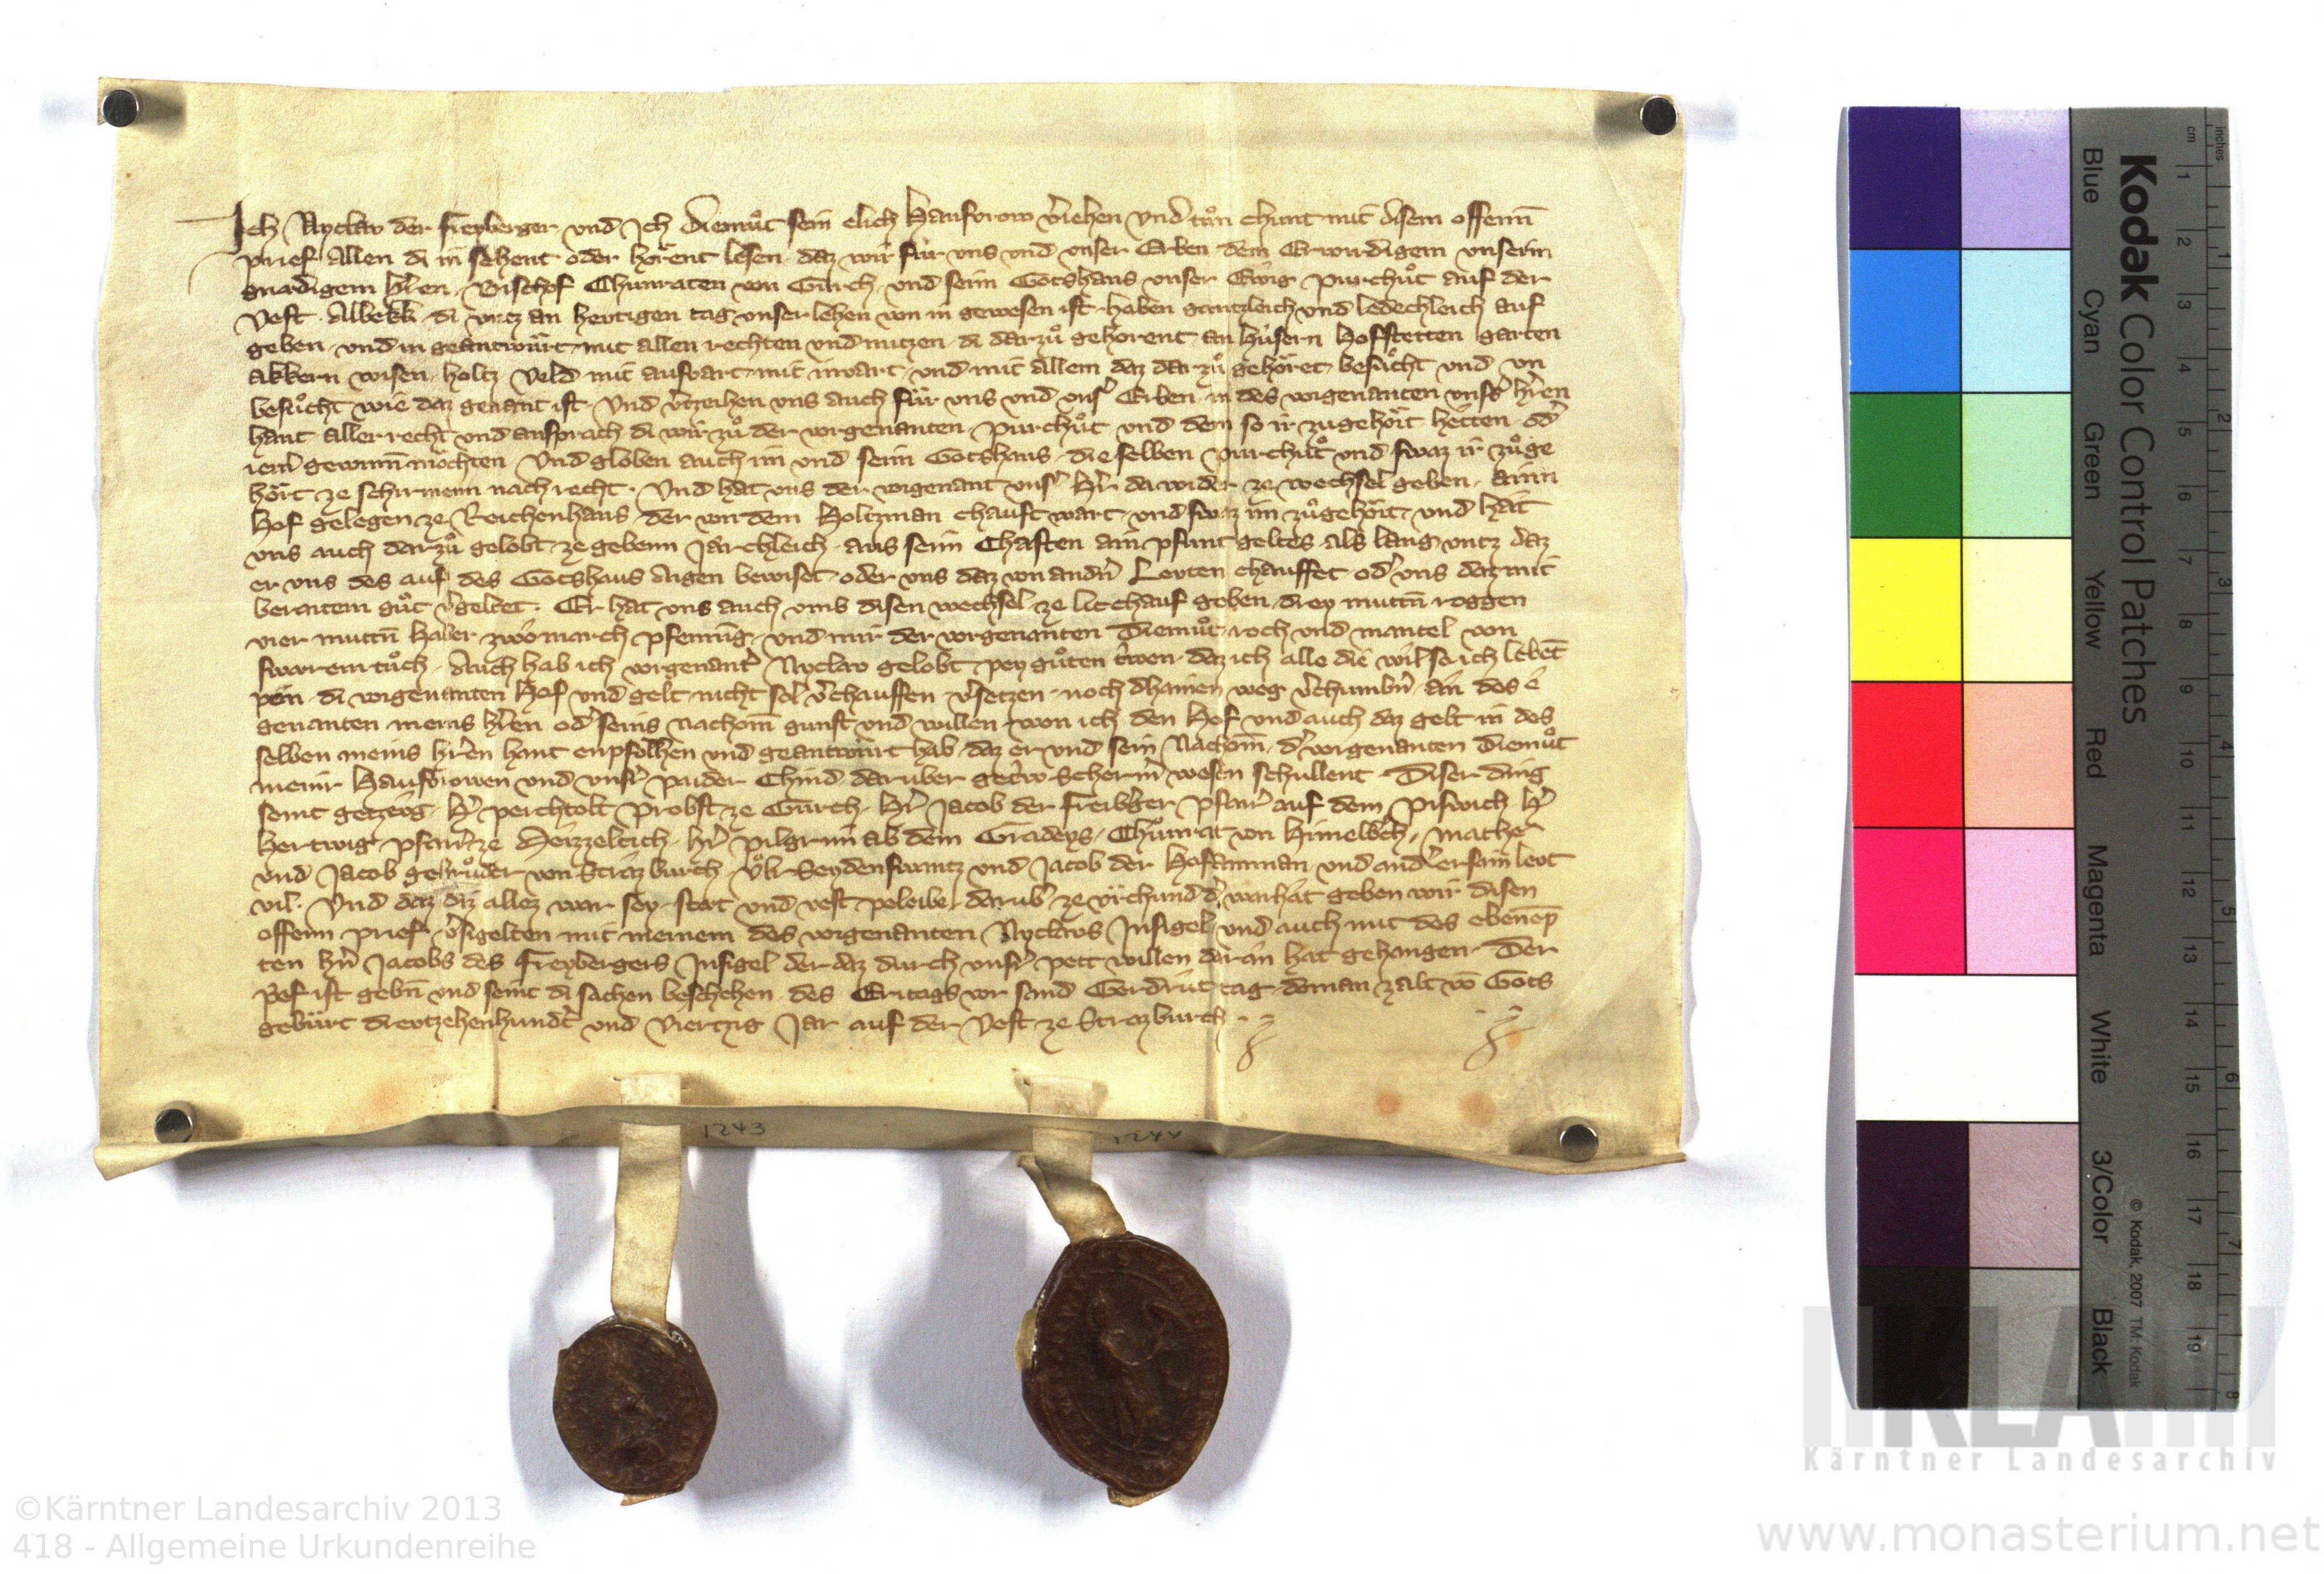 Ich Nyclaw der Freyberger und Ich Diemůt sein elich Hausvrow v̓iehen und tůn chunt mit disem offenn̄
prief allen di in sehent oder hörent lesen daz wir für uns und unser Erben dem Erwirdigem unserm
gnädigem h̓ren Bischof Chunraten von Gurch und seim Gotshaus unser Ewig purchůt auf der
Vest Albekk di untz an hevtigen tag unser lehen von in gewesen ist haben gantzleich und ledechleich auf
geben und in geantwürt mit allen rechten und nutzen di darzů gehörent an Hüsern Hofstetten garten
akkern wisen holtz veld mit ausvart mit invart und mit allem daz darzů gehöret besůcht und un
besůcht wie daz genant ist Und v̓tzeihen uns auch für uns und uns̓ Erben in des vorgenanten uns̓s h̓ren
hant aller recht und ansprach di wir zů der vorgenanten purchůt und dem so ir zugehört hetten od̓
iem̓ gewinn̄ möchten Und globen auch im und seim Gotshaus dieselben purchůt und swaz ir zůge
hört ze schirmenn nach recht Und hat uns der vorgenant uns̓ h̓r da wider ze wechsel geben ainn
Hof gelegen ze Reichenhaus der von dem Holtzman chauft wart und swaz im zůgehört und hat
uns auch darzů gelobt ze gebenn Järchleich aus seim Chasten ain pfunt geltes als lang untz daz
er uns des auf des Gotshaus aigen beweiset oder uns daz von and̓n Levten chauffet od̓ uns daz mit
beraitem gůt v̓geltet Er hat uns auch umb disen wechsel ze leitchauf geben drey muttn̄ roggen
vier muttn̄ haber zwo march pfenning und mir der vorgenanten Diemůt roch und mantel von
swarem tůch Auch hab ich vorgenant̓ Nyclaw gelobt pey gůten trwen daz ich alle die weil so ich lebēt
pin di vorgenanten Hof und gelt nicht sol v̓chauffen v̓setzen noch dhainen weg v̓chumb̓n an des e
genanten meins h̓ren od̓ seins nachom̄ gunst und willen won ich den Hof und auch daz gelt in des
selben meins h̓ren hant enpfolhen und geantwürt hab daz er und sein Nachom̄ d̓ vorgenanten Diemůt
meinr Hausvrowen und uns̓r paider Chind daruber getrw Scherm̓ wesen schullent Diser ding
seint getzevg H̓ Perchtolt Probst ze Gurch H̓r Jacob der Freib̓ger pfarr̓ auf dem Pisweich H̓
Hertwig pfarr̓ ze H̓r Pilgrim ab dem Gradeys Chůnrat von Himelb̓ch Mathe
und Jacob gebrůder von Strazburch Ůlr Seydenswantz und Jacob der Hofamman und and̓ ersam levt
vil Und daz ditz allez war sey stet und vest peleibe darub̓ ze urchund d̓ warhait geben wir disen
offenn prief v̓sigelten mit meinem des vorgenanten Nyclaws Insigel und auch mit des ebenen
ten h̓n Jacobs des Freybergers Insigel der daz durch uns̓r pett willen daran hat gehangen Der
p̓ef ist gebn̄ und seint di sachen beschehen des Eritags vor sand Gerdrůt tag do man zalt vō Gots
gebürt drevtzehenhund̓t und viertzig Jar auf der Vest ze Strazburch
1243
1244
Kodak Color Control Patches
Blue Cyan Green Yellow Red Magenta White 3/Color Black
© Kodak, 2007 TM: Kodak
cm 1 2 3 4 5 6 7 8 9 10 11 12 13 14 15 16 17 18 19
inches 1 2 3 4 5 6 7 8
KLA
Kärntner Landesarchiv
©Kärntner Landesarchiv 2013
418 - Allgemeine Urkundenreihe
www.monasterium.net